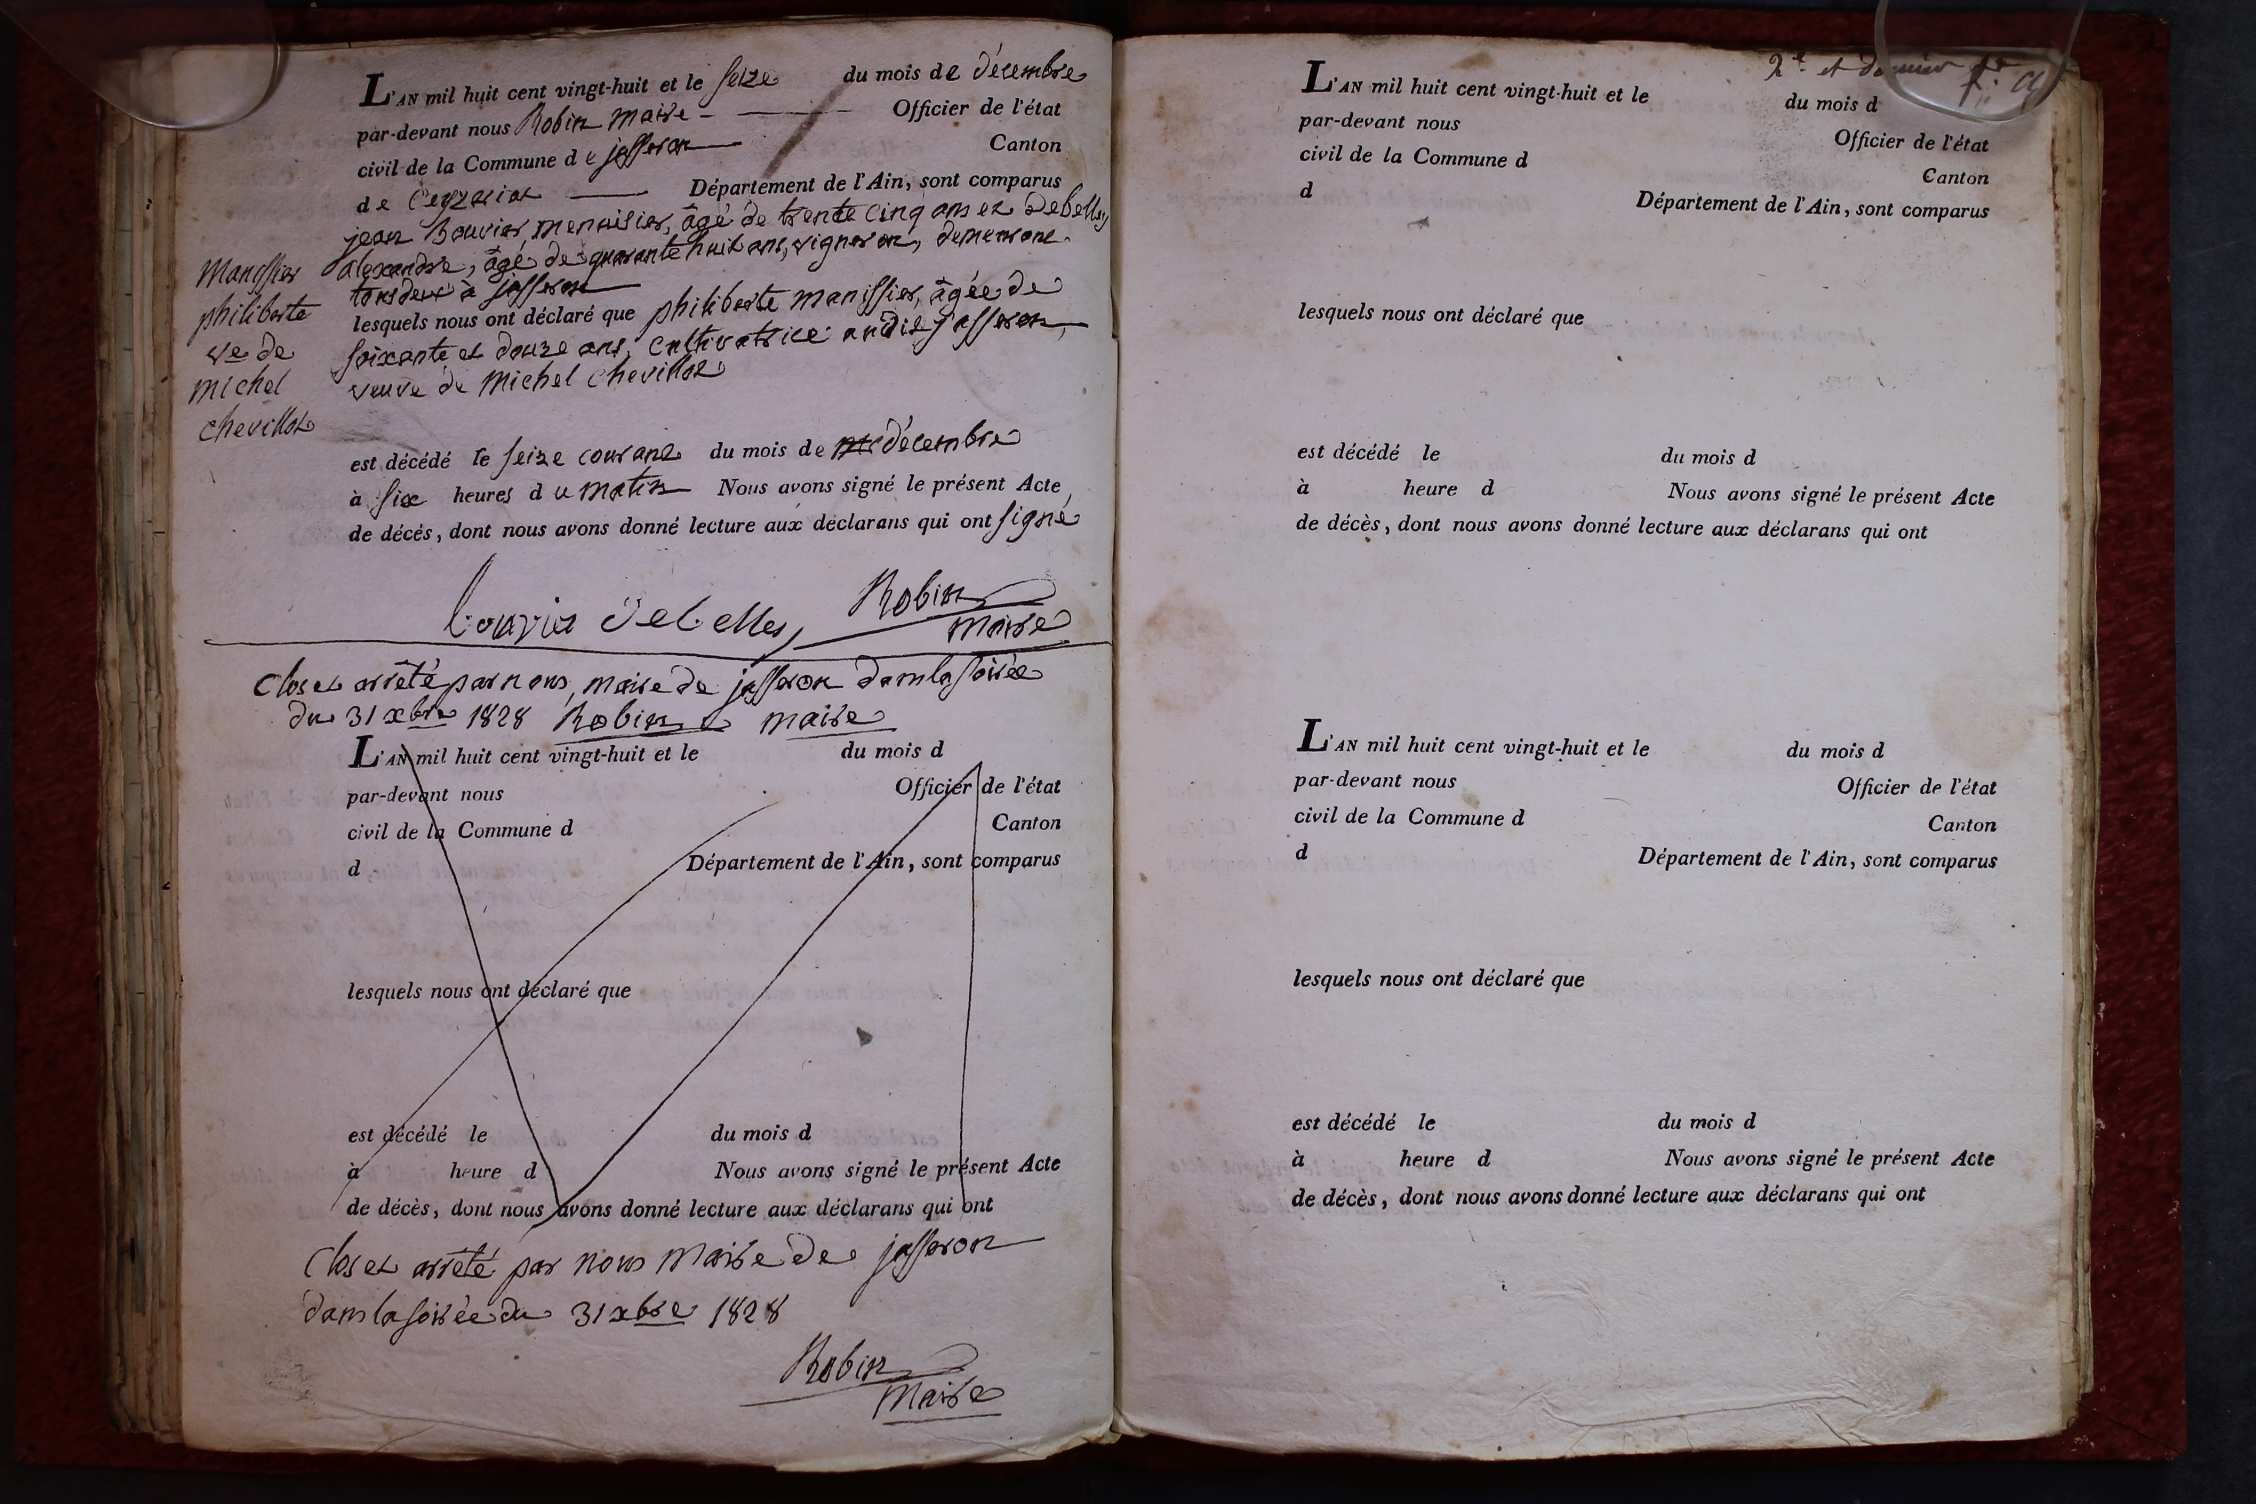 L'AN mil huit cent vingt-huit et le seize du mois de décembre
par-devant nous Robin maire - Officier de l'état
civil de la Commune de jasseron Canton
de Ceyzeriat Département de l'Ain, sont comparus
jean Bouvier menuisier, âgé de trente cinq ans et Debelley
alexandre, âgé de quarante huit ans, vigneron, demeurant
tous deux à jasseron
lesquels nous ont déclaré que philiberte manissier, âgée de
soixante et douze ans, cultivatrice audit jasseron,
veuve de michel chevillot
est décédé le seize courant du mois de décembre
à six heures du matin Nous avons signé le présent Acte
de décés, dont nous avons donné lecture aux déclarans qui ont signé
manissier
philiberte
ve de
michel
chevillot
bouvier debelley Robin
maire
Clos et arrêté par nous, maire de jasseron dans la soirée
du 31 xbre 1828 Robin maire
L'AN mil huit cent vingt-huit et le du mois d
par-devant nous Officier de l'état
civil de la Commune d Canton
d Département de l'Ain, sont comparus
lesquels nous ont déclaré que
est décédé le du mois d
à heure d Nous avons signé le présent Acte
de décès, dont nous avons donné lecture aux déclarans qui ont
Clos et arrêté par nous Maire de jasseron
dans la soirée du 31 xbre 1828
Robin
Maire
2e et dernier
L'AN mil huit cent vingt-huit et le du mois d
par-devant nous Officier de l'état
civil de la Commune d Canton
d Département de l'Ain, sont comparus
lesquels nous ont déclaré que
est décédé le du mois d
à heure d Nous avons signé le présent Acte
de décès, dont nous avons donné lecture aux déclarans qui ont
L'AN mil huit cent vingt-huit et le du mois d
par-devant nous Officier de l'état
civil de la Commune d Canton
d Département de l'Ain, sont comparus
lesquels nous ont déclaré que
est décédé le du mois d
à heure d Nous avons signé le présent Acte
de décès, dont nous avons donné lecture aux déclarans qui ont